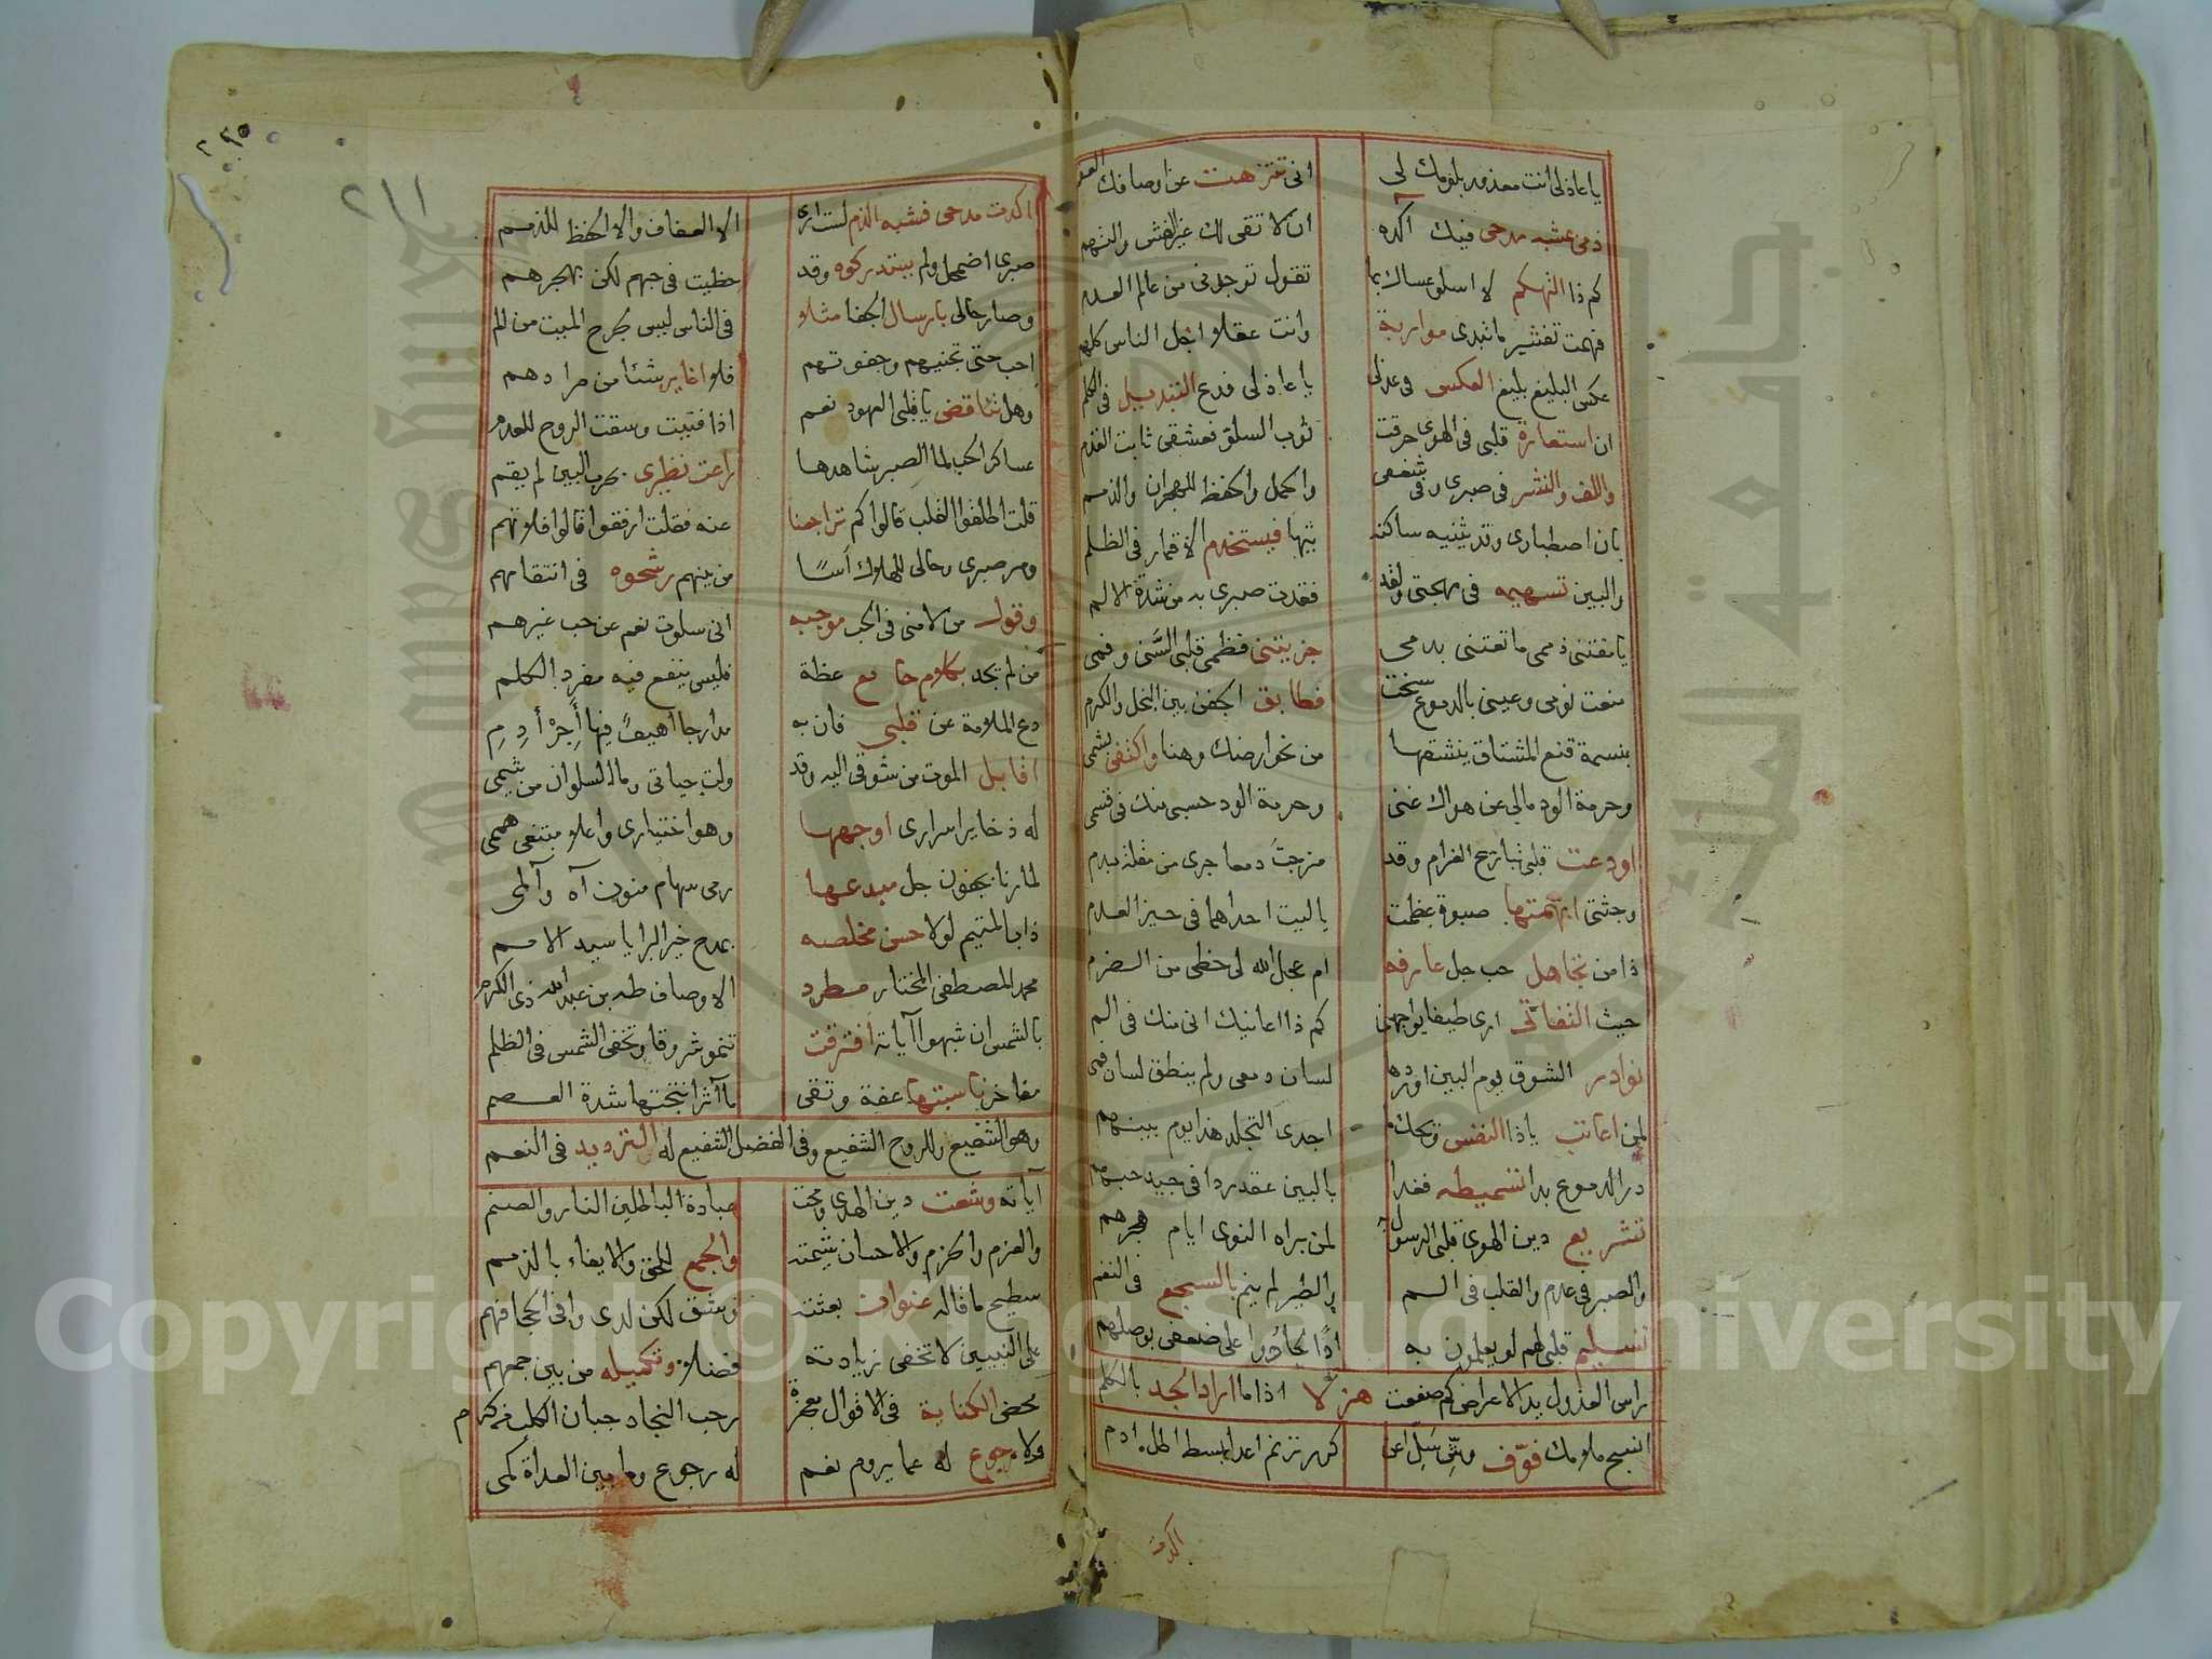 يا عاذلى انت معذور بلومك لى انى تنزهت عن اوصافك
ذمى عشبه مدحى فيك اكده ان لا تقى لك غير الغش والتهم
كم ذا التهكم لا اسلو عساك بما تقول توجدنى من عالم العدم
فهمت تفتير ما تبدى مواربة وانت عقلا اجل الناس كلهم
عكس البليغ بليغ العكس فى عذلى يا عاذلى فدع التبديل فى الكلم
ان استعارة قلبى فى الهوى حرقت ثوب السلو فعشقى ثابت القدم
واللف والنشر فى صبرى وفى شغفى واكمل واحفظ للهجران والذمم
بان اصطبارى وقد يثنيه ساكنه تيها فيستخدم الاقمار فى الظلم
والبين تسهيمه فى مهجتى ولقد فقدت صبرى به من شدة الالم
يا مفتنى ذممى ما تعتنى بدمى جزيتنى فظمى قلبى السنى وفمى
منعت نومى وعينى بالدموع سخت فطابق الجفن بين البخل والكرم
بنسمة قنع المشتاق ينشقها من نحو ارضك وهنا واكتفى بشمى
وحرمة الود مالى عن هواك غنى وحرمة الود حسبى منك فى قسمى
اودعت قلبى تباريح الغرام وقد مزجت دمعا جرى من مقلة بدم
وجثتى ابهمتها صبوة عظمت ياليت احداهما فى حيز العدم
ذا من تجاهل حب جل عارفه ام عجل الله لى حظى من الضرم
حيث التفاتى ارى طيفا يواجهنى كم ذا اعانيك انى منك فى الم
نوادر الشوق يوم البين اورده لسان دمعى ولم ينطق لسان فمى
لمن اعاتب يا ذا النفس ويحك ما اجدى التجلد هذا يوم بينهم
در الدموع بدا تسميطه فغدا بالبين عقد ردا فى جيد حبهم
تشريع دين الهوى قلبى الرسول لمن براه النوى ايام هجرهم
والصبر فى عدم والقلب فى الم والطير لم ينم بالسجع فى النغم
تسليم قلبى لهم لو يعلمون به اذا لجادوا على ضعفى بوصلهم
براس العذول يد الاعراض كم صفعت هزلا اذا ما اراد الجد بالكلم
انسج ملامك فوف كرر ترنم ادم
اكدت
٢١١
اكدت مدحى فشبه الذم لست ارى الا العفاف والا الحفظ للذمم
صبرى اضمحل ولم يستدركوه وقد حظيت فى حبهم لكن بهجرهم
وصار حالى بارسال الجفا مثلا فى الناس ليس كجرح الميت من الم
احب حتى تجنيهم وجفوتهم فلا اغاير شئا من مرادهم
وهل تناقض يا قلبى العهود نعم اذا فنيت وسقت الروح للعدم
عساكر الحب لما الصبر شاهدها راعت نظيرى بحرب البين لم يقم
قلت اطلقوا القلب قالوا كم تراجعنا عنه فقلت ارفقوا قالوا فلا تهم
ومر صبرى وحالى للهلاك أسًا من بينهم رشحوه فى انتقامهم
وقول من لامنى فى الحب موجبه انى سلوت نعم عن حب غيرهم
من لم يجد بكلام جامع عظة فليس ينفع فيه مفرد الكلم
دع الملامة عن قلبى فان به مدارجا أهيف فيها أجز أدم
اقابل الموت من شوقى اليه وقد ولت حياتى وما السلوان من شيمى
له ذخاير اسرارى اوجهها وهو اختيارى واعلا مبتغى هممى
لما رنا بجفون جل مبدعها رمى سهام منون آه وآلمى
ذاب المتيم لولا حسن مخلصه بمدح خير البرايا سيد الامم
محمد المصطفى المختار مطرد الاوصاف طه بن عبد الله ذى الكرم
بالشمس ان شبهوا آياته افترقت تنمو شروقا وتخفى الشمس فى الظلم
مفاخر ناسبتها عفة وتقى مآثر انتجتها شدة العصم
وهو الشفيع وللروح الشفيع وفى الفضل الشفيع له الترديد فى النعم
آياته وشعت دين الهدى ومحت عبادة الباطلين النار والصنم
والعزم والحزم والاحسان شيمته والجمع للحق والايفاء بالذمم
سطيح ما قاله عنوان بعثته وشق لكن لدى وافى الحجا فهم
على النبيين لا تخفى زيادته فضلا وتكميله من بين جمعهم
محض الكناية فى الاقوال معجزة رحب النجاد جبان الكلب
ولا رجوع له عما يروم نعم له رجوع وما بين العداة كمى